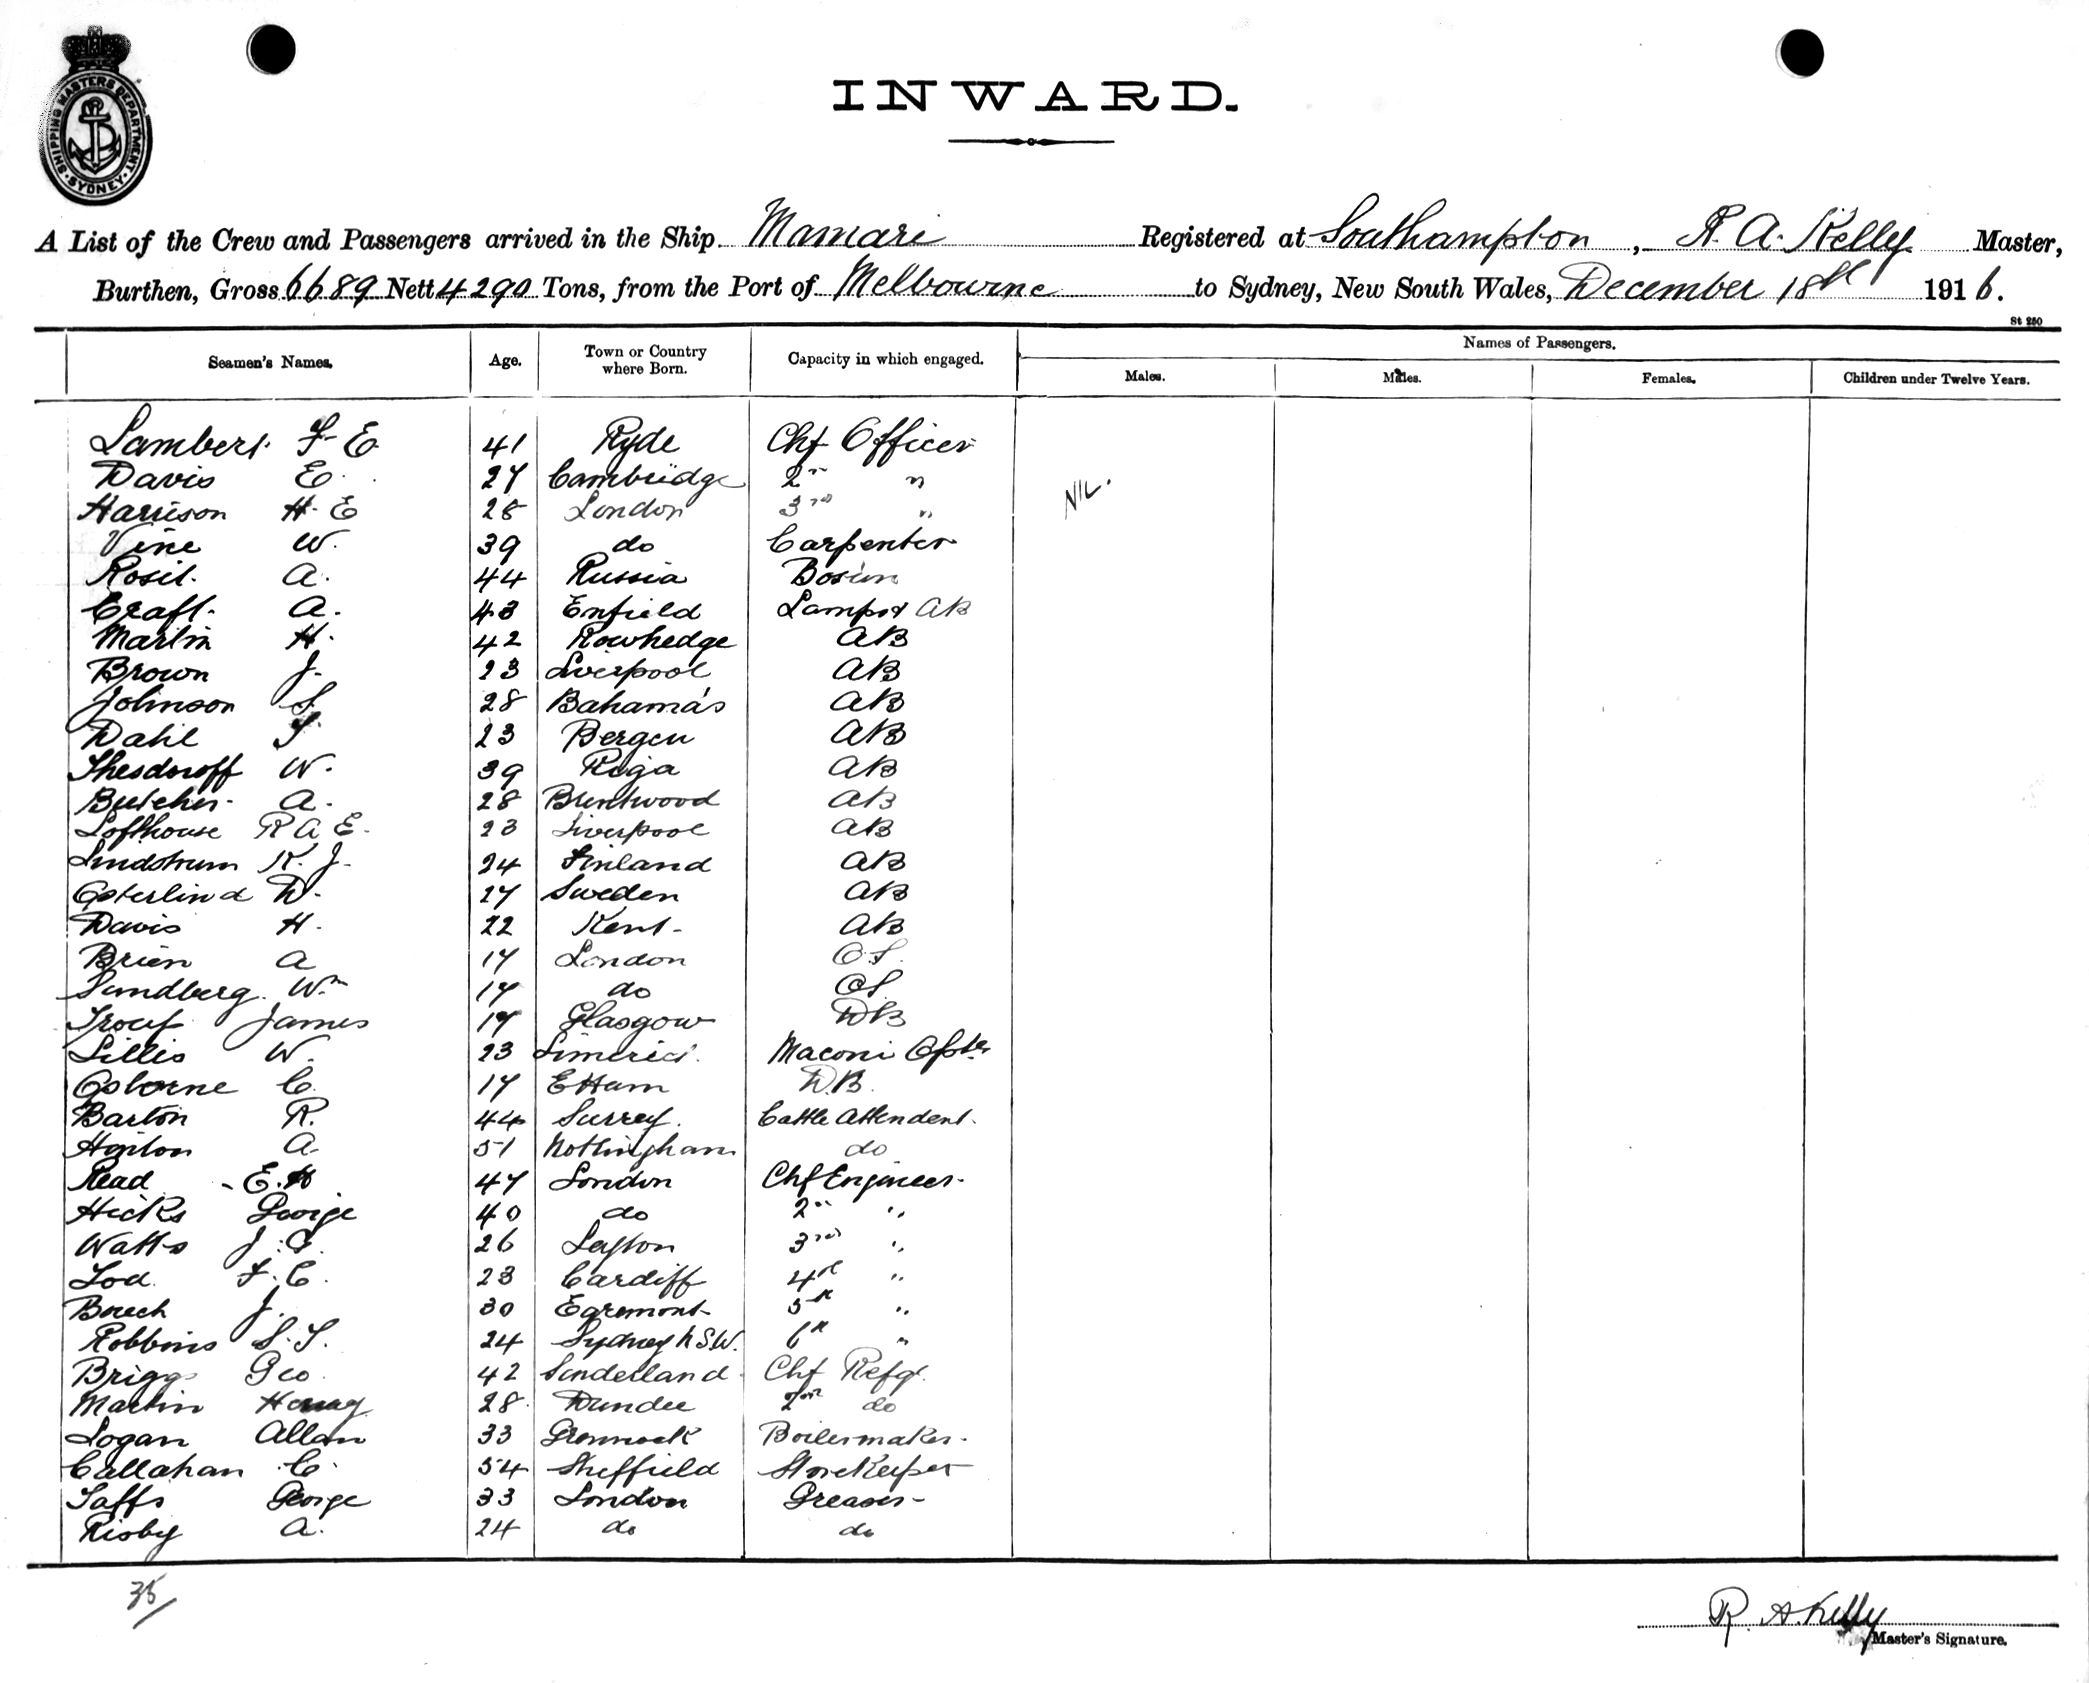 INWARD.
SHIPPING MASTERS DEPARTMENT. SYDNEY
A List of the Crew and Passengers arrived in the Ship Mamari Registered at Southampton, R. A. Kelly Master,
Burthen, Gross 6689 Nett 4290 Tons, from the Port of Melbourne to Sydney, New South Wales, December 18th 1916.
St 250
Seamen's Names. Age. Town or Country where Born. Capacity in which engaged. Names of Passengers.
Males. Males. Females. Children under Twelve Years.
Lambert F. E 41 Ryde Chf Officer
Davis E. 27 Cambridge 2nd "
NIL.
Harrison H. E 28 London 3rd "
Vine W. 39 do Carpenter
Rosit. A. 44 Russia Bosun
Craft. A. 43 Enfield Lamps & AB
Martin H. 42 Rowhedge AB
Brown J. 23 Liverpool AB
Johnson S. 28 Bahama's AB
Dahl 23 Bergen AB
W. 39 Riga AB
Butcher. A. 28 Brentwood AB
Lofthouse R A E. 23 Liverpool AB
Lindstrum K. J. 24 Finland AB
Osterlind D. 27 Sweden AB
Davis H. 22 Kent AB
Brien A 17 London OS.
Sundberg. Wm 17 do OS.
James 17 Glasgow DB
Lillis W. 23 Limerick Maconi Opter
Osborne C. 17 E Ham D.B.
Barton R. 44 Surrey. Cattle Attendent.
A. 51 Nottingham do
Read E. H 47 London Chf Engineer.
Hicks George 40 do 2nd "
Watts J. G. 26 Leyton 3rd "
F. C. 23 Cardiff 4th "
J. 30 Egremont 5th "
Robbins S. T. 24 Sydney N.S.W. 6th "
Briggs Geo 42 Sunderland Chf Refg.
Martin Henry 28 Dundee 2nd do
Logan Allan 33 Greenock Boilermaker.
Callahan C. 54 Sheffield Storekeeper
Taffs George 33 London Greaser
Risby A. 24 do do
35/
R. A. Kelly
Master's Signature.